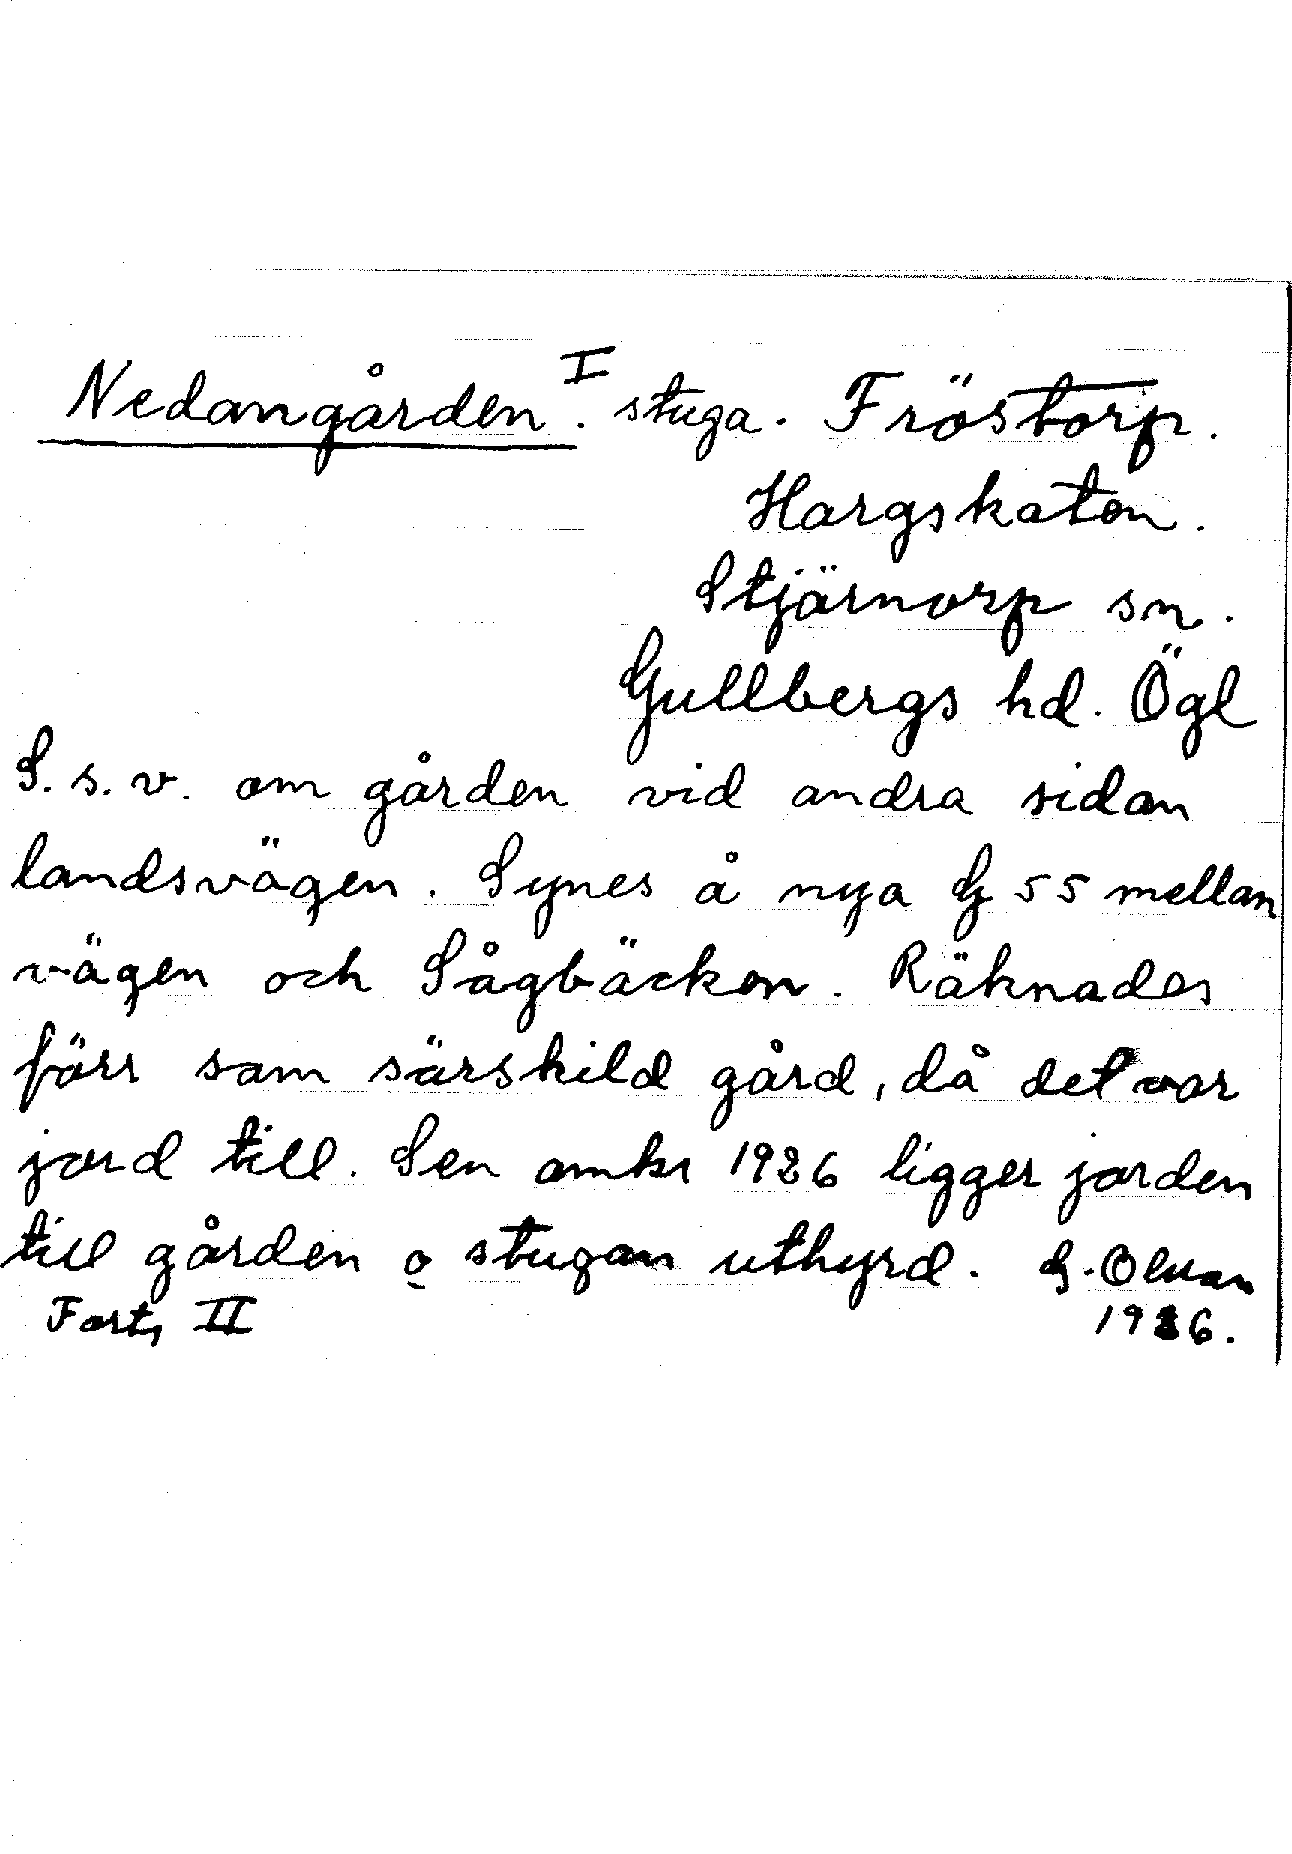 Nedangården I. stuga. Fröstorp.
Hargskaten.
Stjärnorp sn.
Gullbergs hd. Ögl
S. s. v. om gården vid andra sidan
landsvägen. Synes å nya G 55 mellan
vägen och Sågbäcken. Räknades
förr som särskild gård, då det var
jord till. Sen omkr 1926 ligger jorden
till gården o stugan uthyrd. G.
Forts II